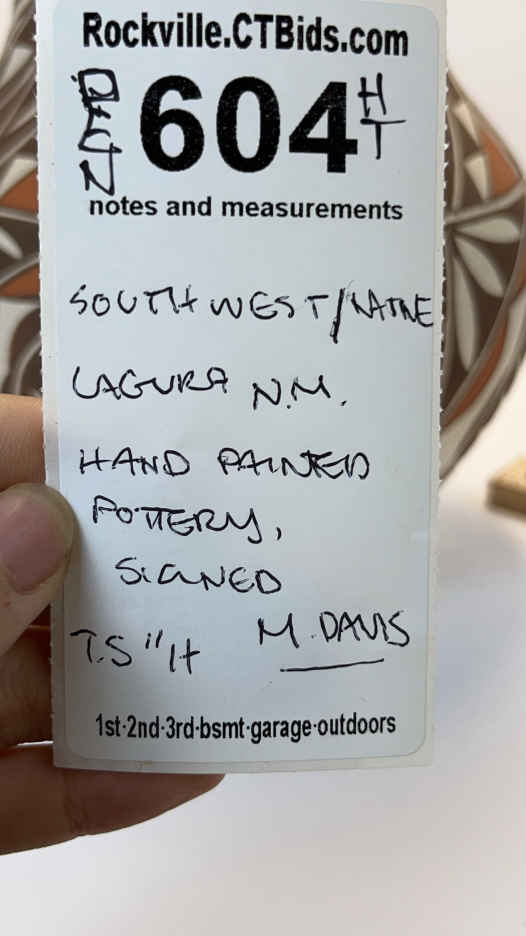 Rockville.CTBids.com
604
HT
notes and measurements
SOUTHWEST/NATIVE
LAGUNA N.M.
HAND PAINTED
POTTERY,
SIGNED
M. DAVIS
7.5"H
1st·2nd·3rd·bsmt·garage·outdoors